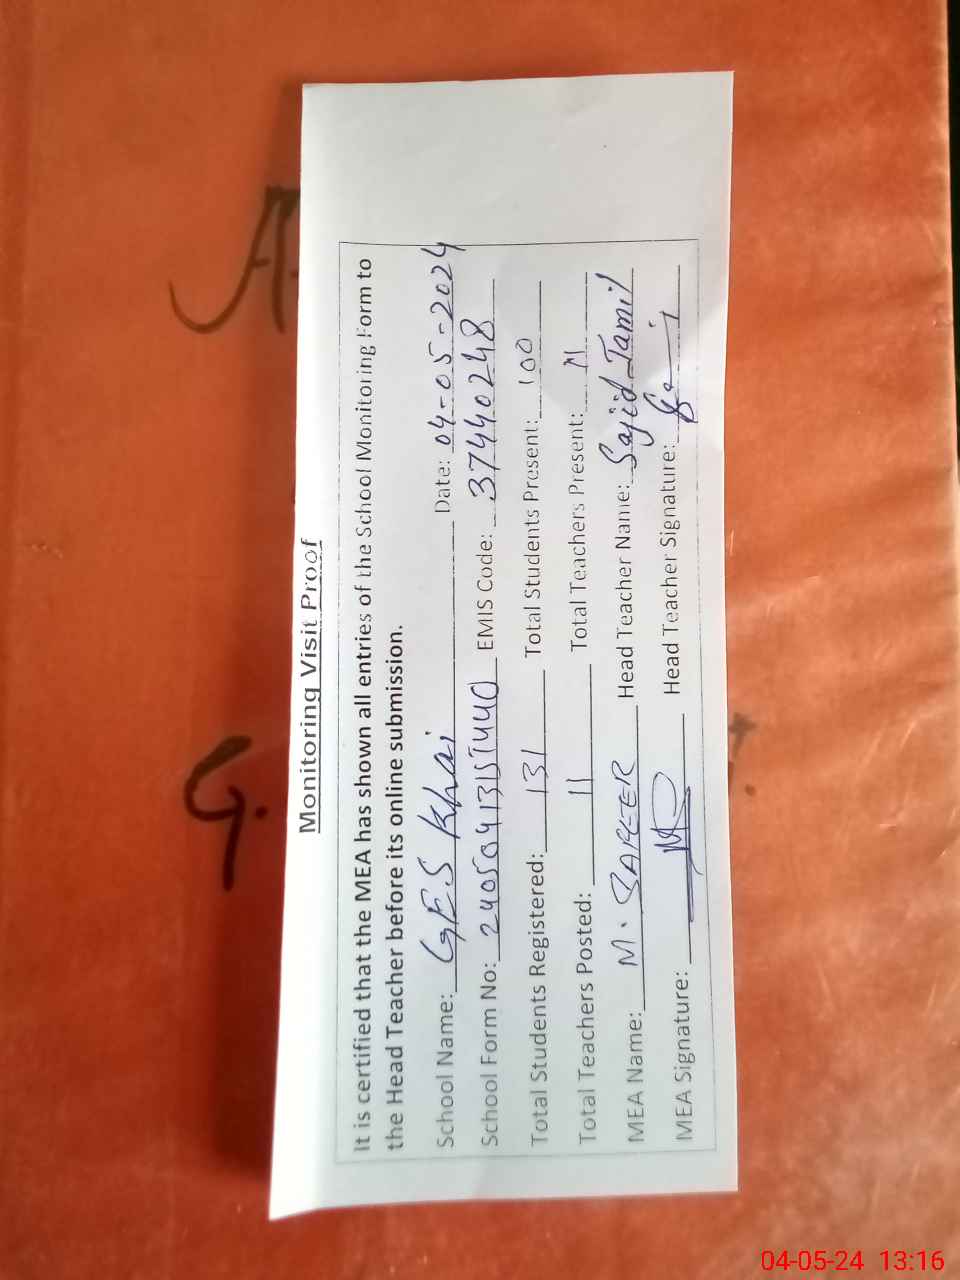 Monitoring Visit Proof
It is certified that the MEA has shown all entries of the School Monitoring Form to
the Head Teacher before its online submission.
School Name: GES Khai Date: 04-05-2024
School Form No: EMIS Code: 37440248
Total Students Registered: 131 Total Students Present: 100
Total Teachers Posted: 11 Total Teachers Present: 11
MEA Name: M. SAFEER Head Teacher Name: Sajid Jamil
MEA Signature: Head Teacher Signature:
G.
04-05-24 13:16